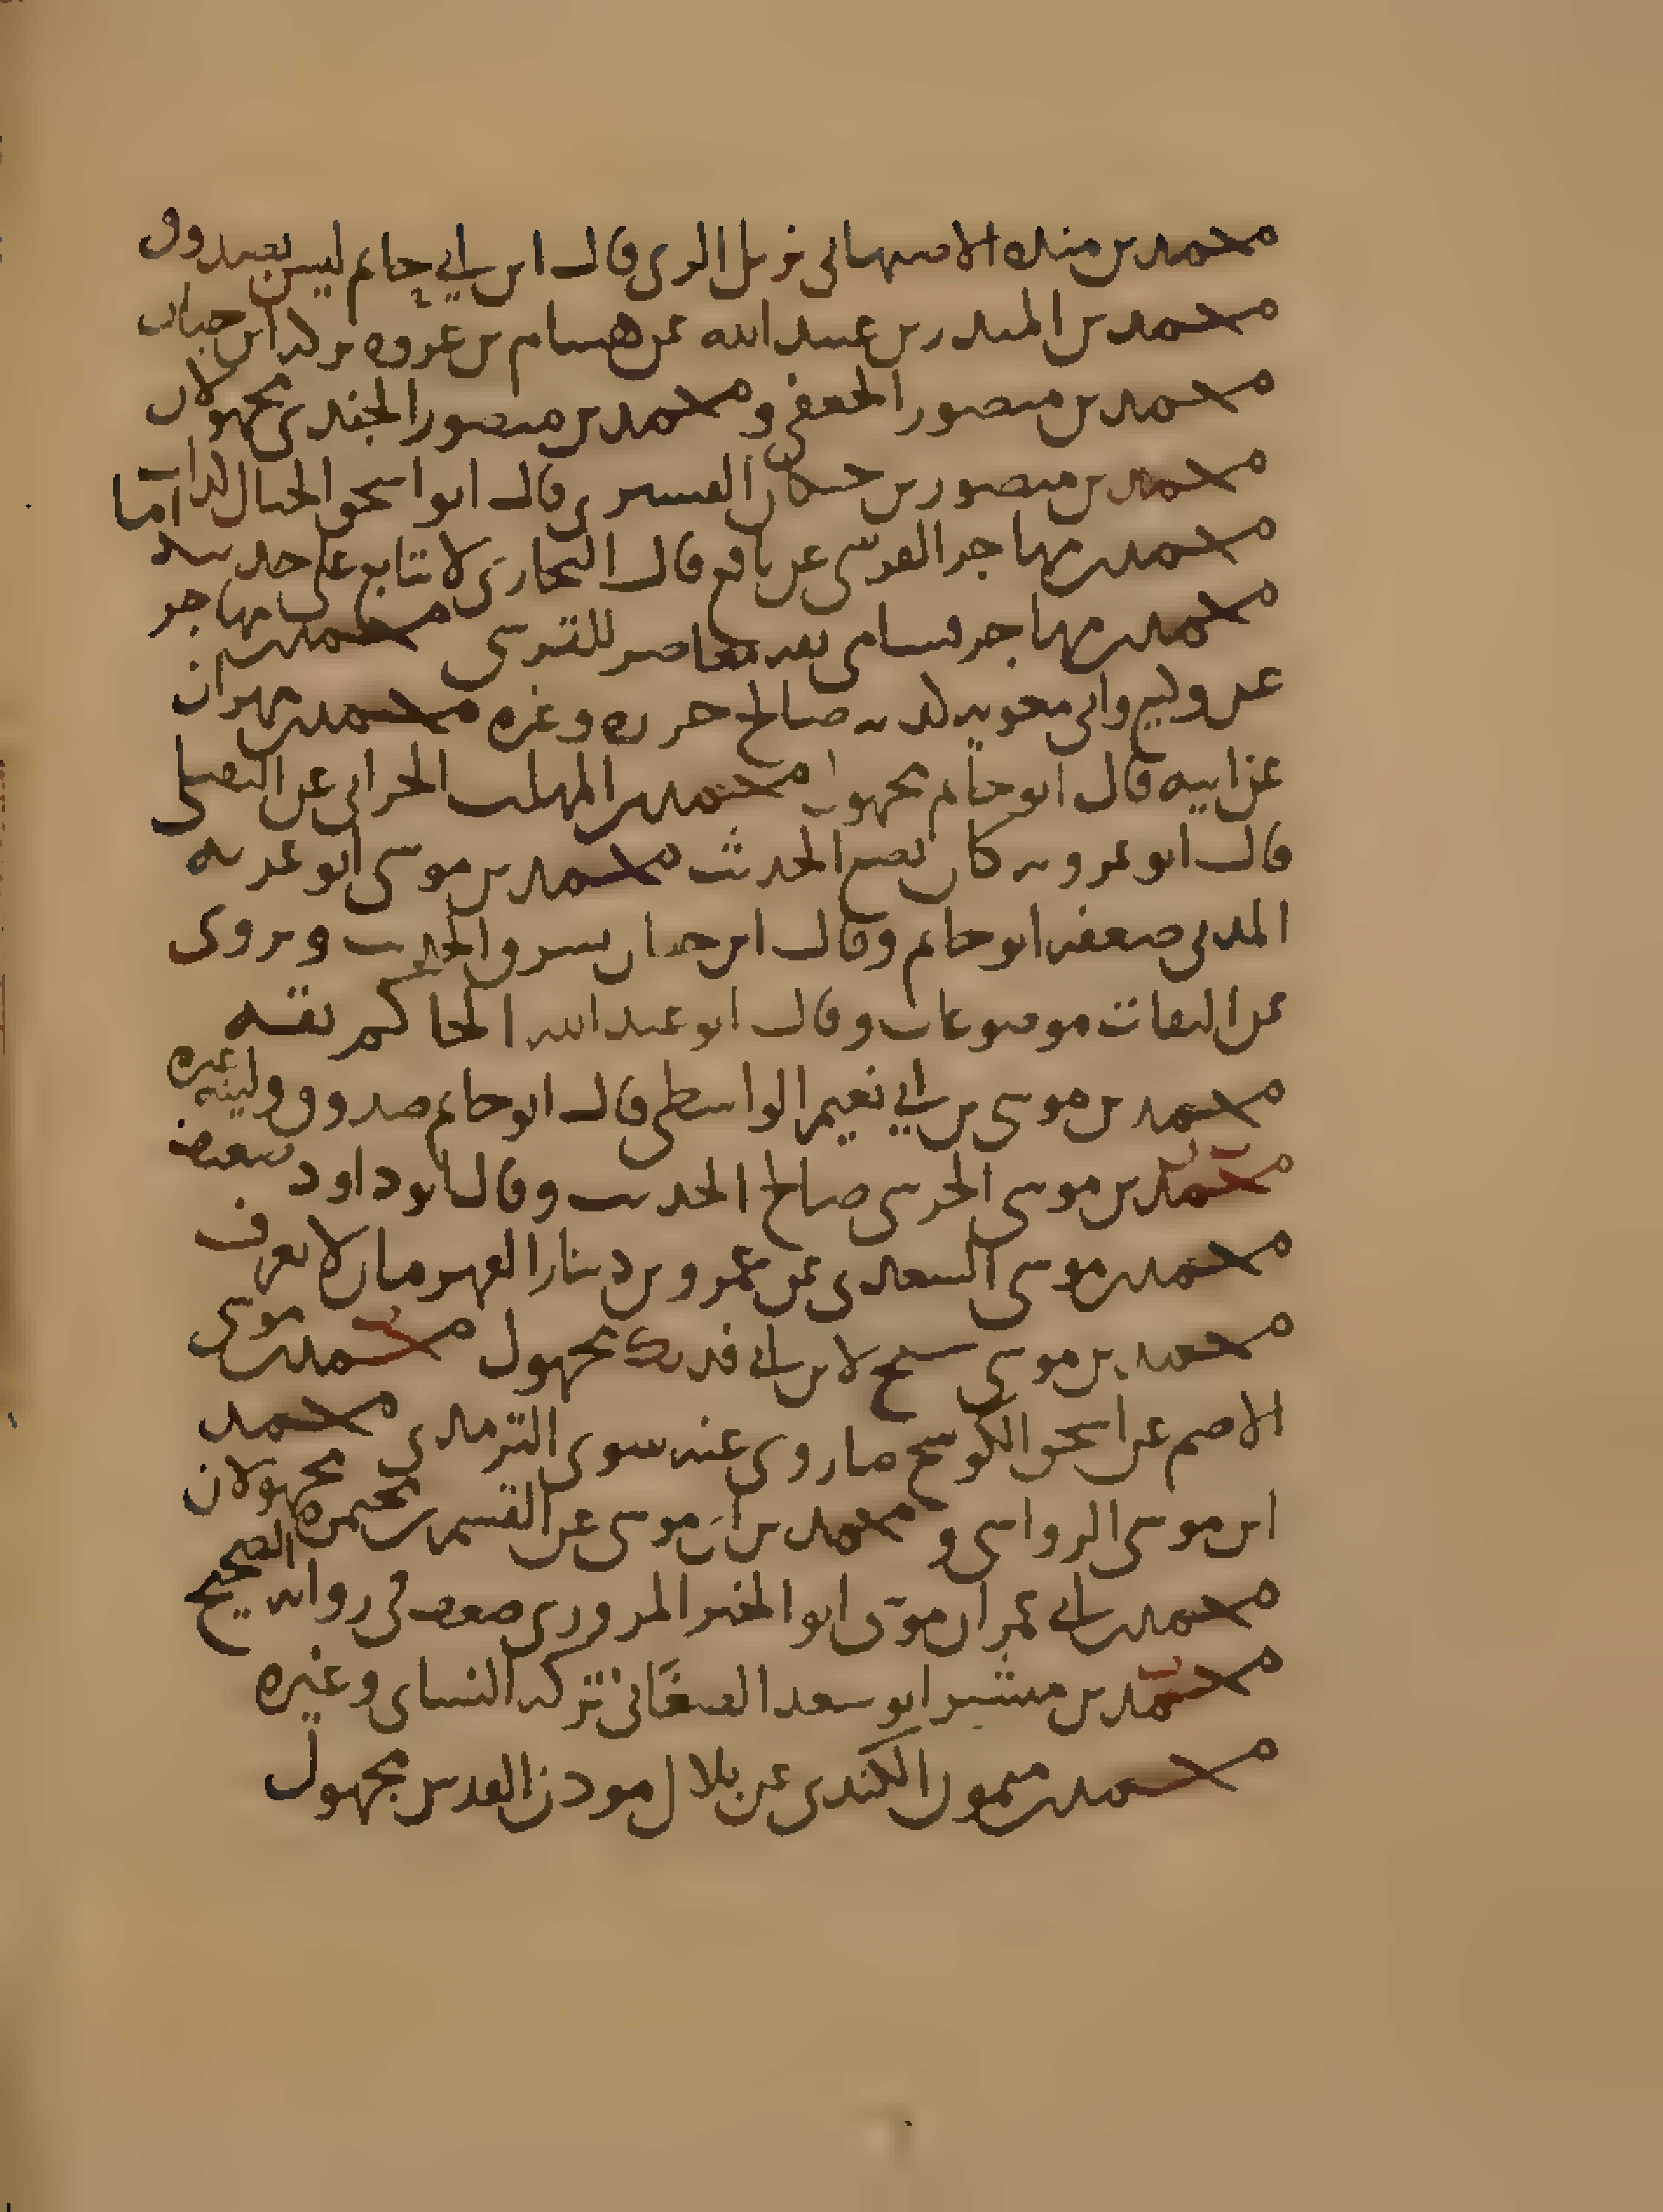 محمد بن منده الاصبهاني نزيل الري قال ابن ابي حاتم ليس بصدوق
محمد بن المنذر بن عبيد الله عن هشام بن عروه تركه ابن حبان
محمد بن منصور الجعفي و محمد بن منصور الجندي مجهولان
محمد بن منصور بن جيكان القشيري قال ابو اسحق الحبال كذاب
محمد بن مهاجر القرشي عن نافع قال البخاري لا يتابع على حديثه
محمد بن مهاجر شامي ثقه معاصر للقرشي محمد بن مهاجر
عن وكيع وابي معويه كذبه صالح جزره وغيره محمد بن مهران
عن ابيه قال ابو حاتم مجهول محمد بن المهلب الحراني عن النفيلي
قال ابو عروبه كان يضع الحديث محمد بن موسى ابو غزيه
المدني ضعفه ابو حاتم وقال ابن حبان يسرق الحديث ويروي
عن الثقات موضوعات وقال ابو عبد الله الحاكم ثقه
محمد بن موسى بن ابي نعيم الواسطي قال ابو حاتم صدوق ولينه غيره
محمد بن موسى الحرشي صالح الحديث وقال ابو داود ضعيف
محمد بن موسى السعدي عن عمرو بن دينار القهرمان لا يعرف
محمد بن موسى شيخ لابن ابي فديك مجهول محمد بن موسى
الاصم عن اسحق الكوسج ما روى عنه سوى الترمذي محمد
ابن موسى الرواسي و محمد بن ابي موسى عن القسم بن مخيمره مجهولان
محمد بن ابي عمران موسى ابو الخير المروزي ضعف في روايه الصحيح
محمد بن ميسر ابو سعد الصغاني تركه النساي وغيره
محمد بن ميمون الكندي عن بلال موذن القدس مجهول